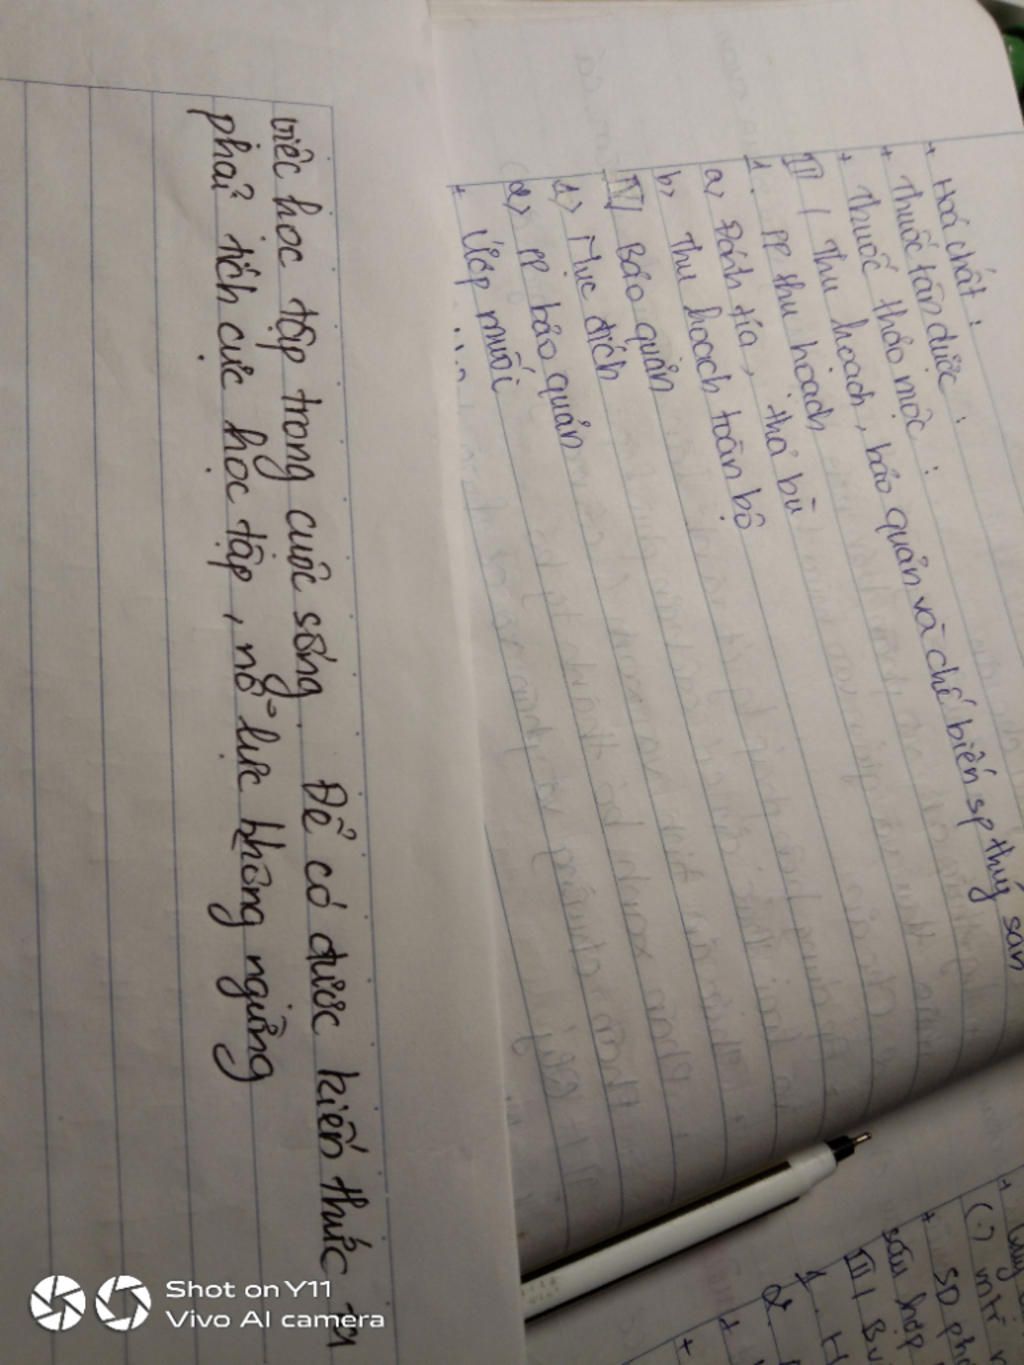 + Hoá chất :
+ Thuốc tân dược :
+ Thuốc thảo mộc :
III / Thu hoạch, bảo quản và chế biến sp thuỷ sản
1. PP thu hoạch
a) Đánh tỉa, thả bù
b) Thu hoạch toàn bộ
IV/ Bảo quản
1) Mục đích
2) PP bảo quản
+ Ướp muối
việc học tập trong cuộc sống. Để có được kiến thức
phải tích cực học tập, nỗ lực không ngừng
(.)
+ SD
III / Bu
1. H
2.
+
Shot on Y11
Vivo AI camera